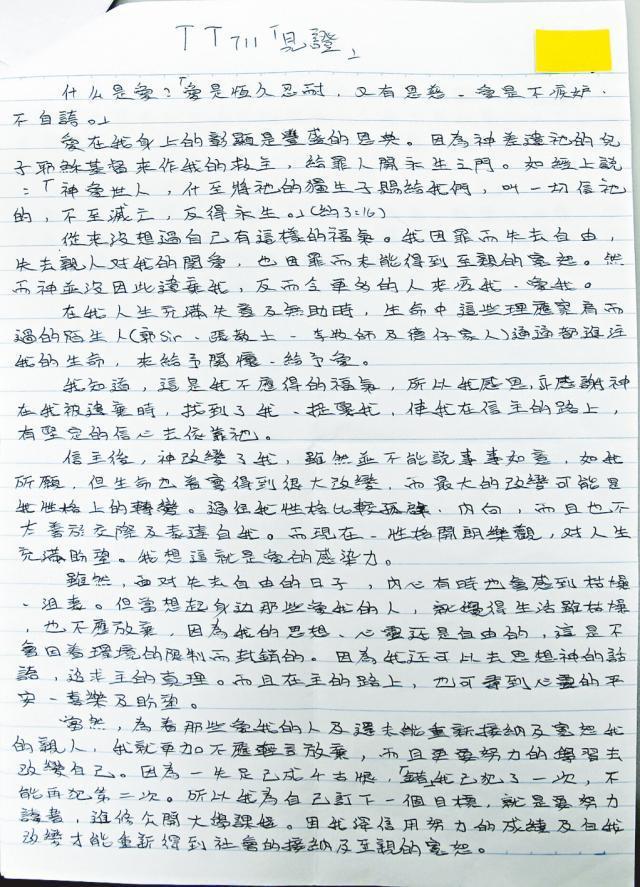 TT711「見證」
什么是愛?「愛是恆久忍耐,又有恩慈、愛是不嫉妒,
不自誇。」
愛在我身上的彰顯是豐盛的恩典。因為神差遣祂的兒
子耶穌基督來作我的救主,給罪人開永生之門。如經上說
:「神愛世人,什至將祂的獨生子賜給我們,叫一切信祂
的,不至滅亡,反得永生。」(約3:16)
從來沒想過自己有這樣的福氣。我因罪而失去自由,
失去親人對我的關愛,也因罪而未能得到至親的寬恕。然
而神並沒因此遺棄我,反而令更多的人來疼我、愛我。
在我人生充滿失意及無助時,生命中這些理應擦肩而
過的陌生人(郭Sir、張教士、李牧師及信仔家人)通通都進注
我的生命,來給予關懷、給予愛。
我知道,這是我不應得的福氣,所以我感恩,亦感謝神
在我被遺棄時,找到了我、揀選我,使我在信主的路上,
有堅定的信心去依靠祂。
信主後,神改變了我,雖然並不能說事事如意,如我
所願,但生命也着實得到很大改變,而最大的改變可能是
我性格上的轉變。過往我性格比較孤僻、內向,而且也不
太善於交際及表達自我。而現在、性格開朗樂觀,對人生
充滿盼望。我想這就是愛的感染力。
雖然,面對失去自由的日子,內心有時也會感到枯燥
、沮喪。但當想起身边那些愛我的人,就覺得生活雖枯燥
,也不應放棄,因為我的思想、心靈还是自由的,這是不
會因着環境的限制而封鎖的。因為我还可以去思想神的話
語,追求主的真理。而且在主的路上,也可尋到心靈的平
安、喜樂及盼望。
當然,為着那些愛我的人及還未能重新接納及寬恕我
的親人,我就更加不應輕言放棄,而且更要努力的學習去
改變自己。因為一失足已成千古恨,「錯」我已犯了一次,不
能再犯第二次。所以我為自己訂下一個目標,就是要努力
讀書,進修公開大學課程。因我深信用努力的成績及自我
改變才能重新得到社會的接納及至親的寬恕。